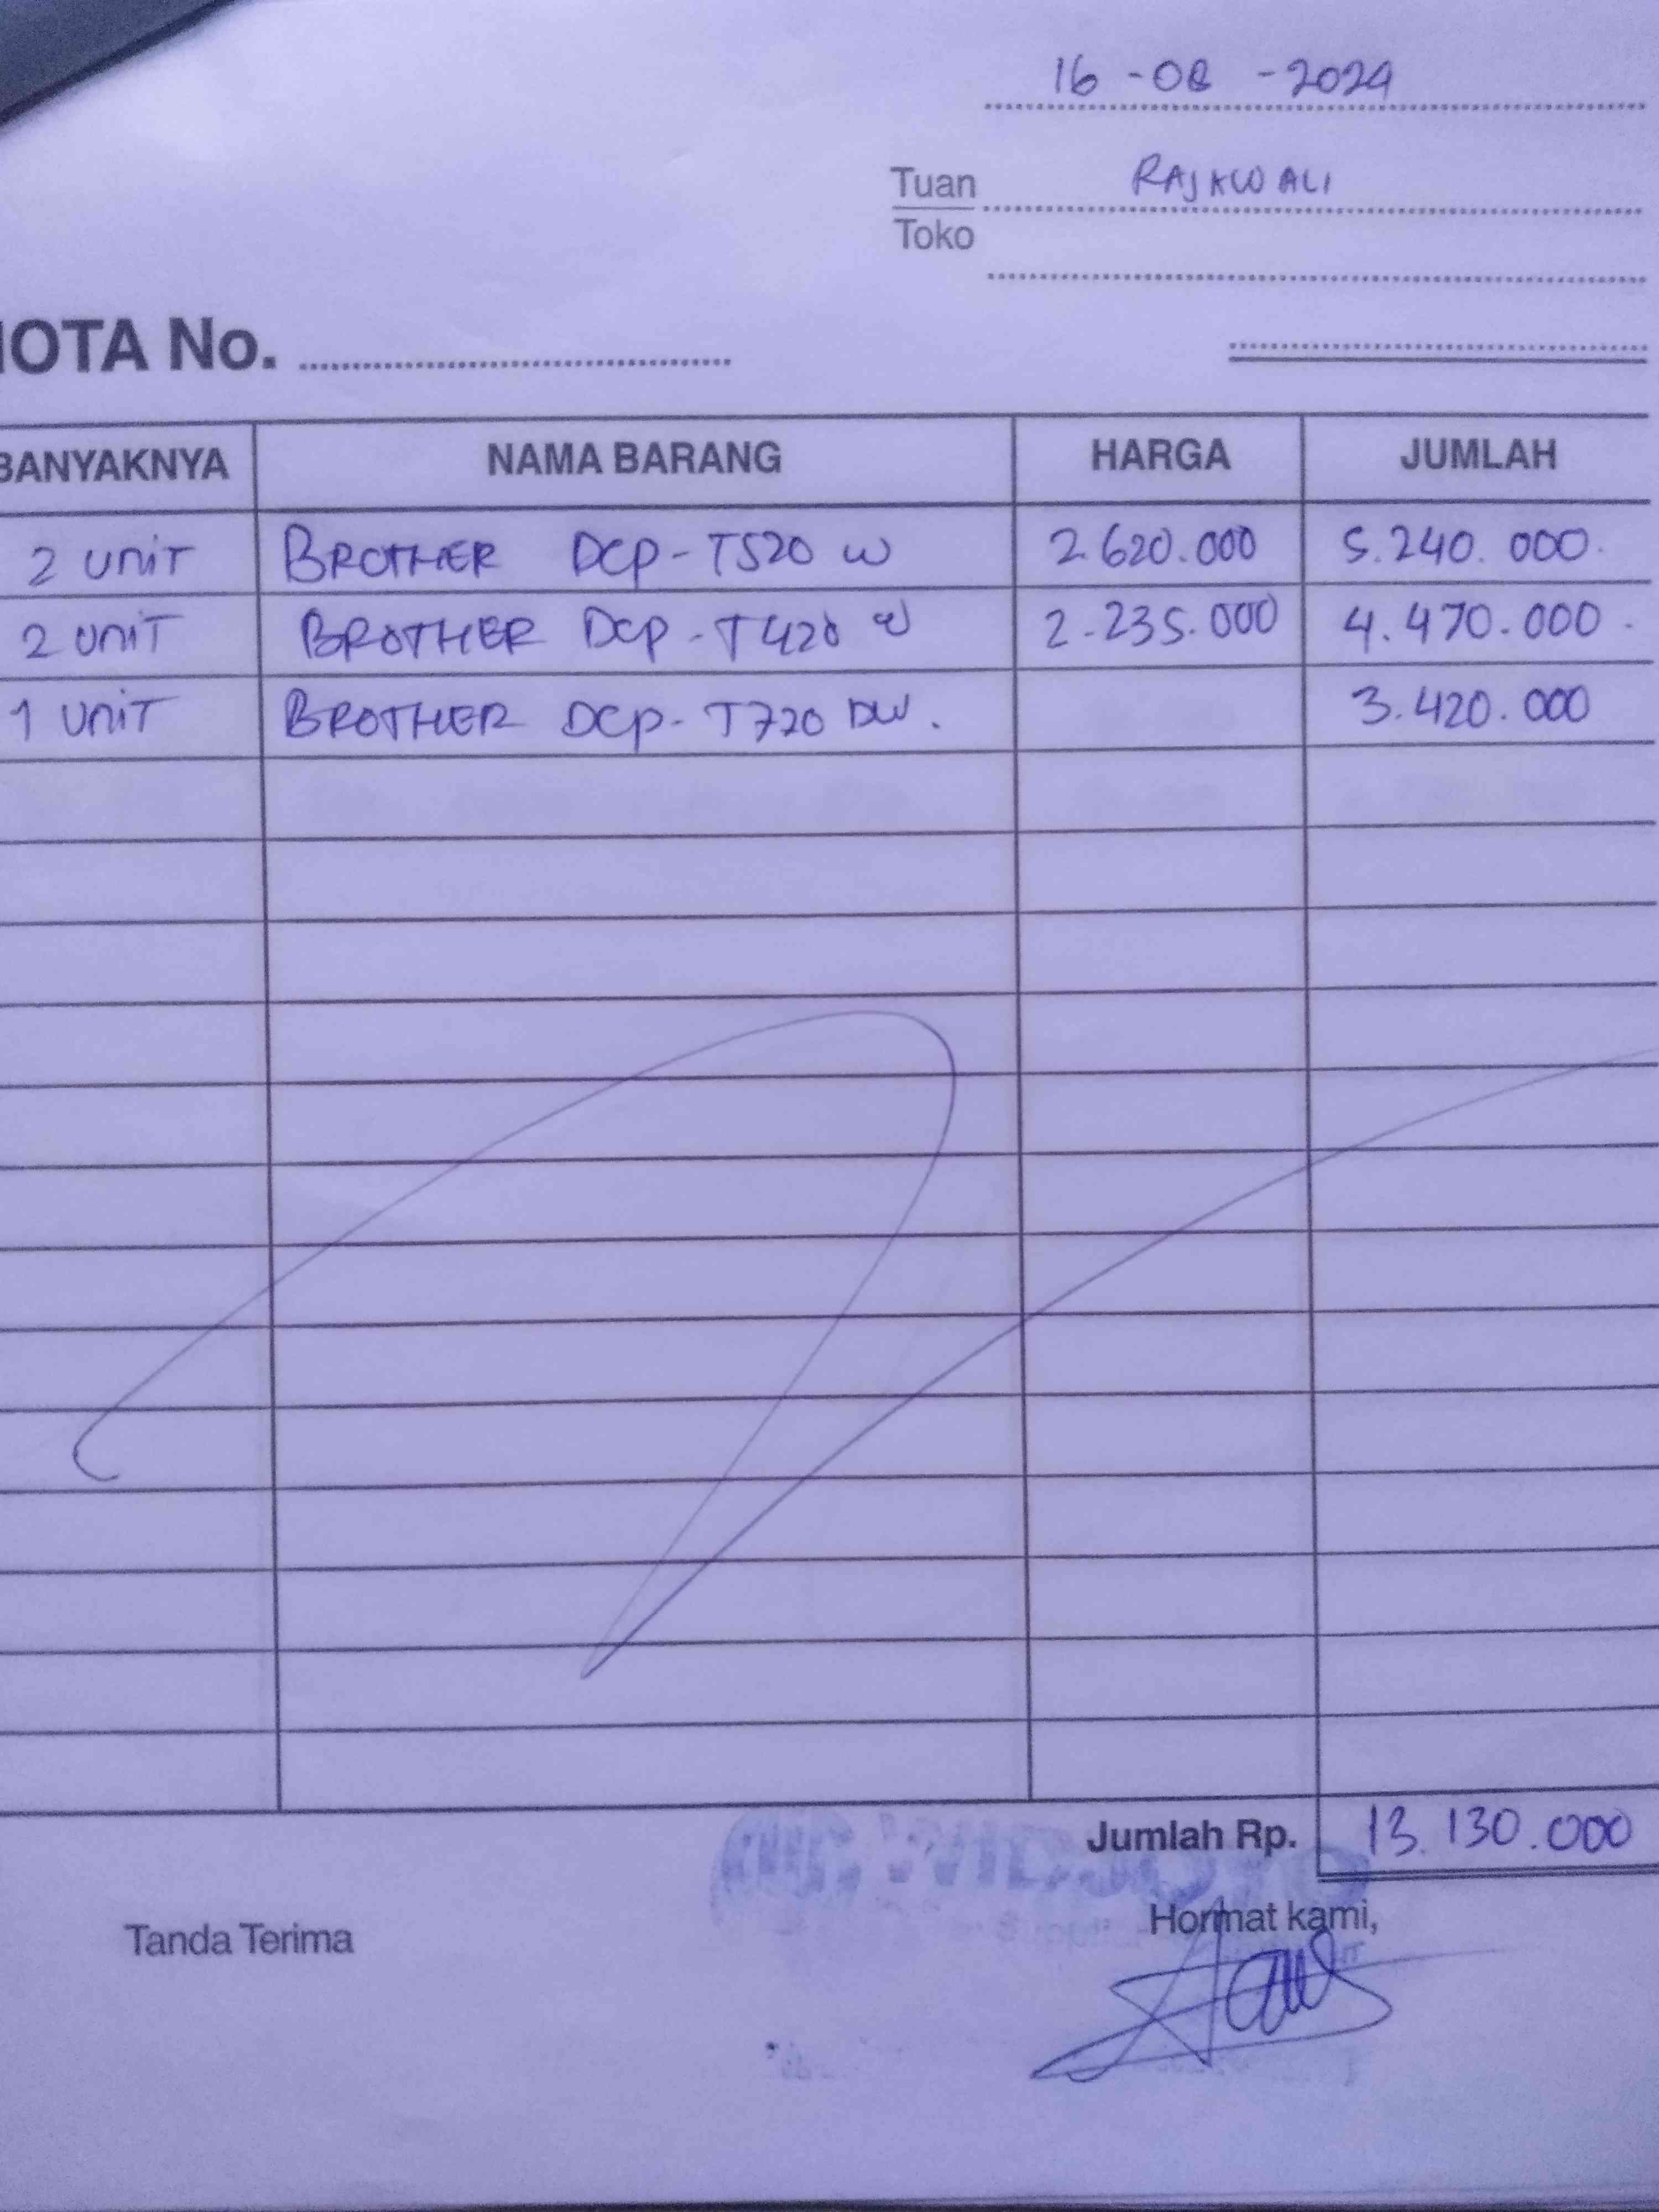 16 - 08 - 2024
Tuan RAJAWALI
Toko
NOTA No.
BANYAKNYA NAMA BARANG HARGA JUMLAH
2 UNIT BROTHER DCP-T520 W 2.620.000 5.240.000
2 UNIT BROTHER DCP-T420 W 2.235.000 4.470.000
1 UNIT BROTHER DCP-T720 DW. 3.420.000
Jumlah Rp. 13.130.000
Tanda Terima Hormat kami,